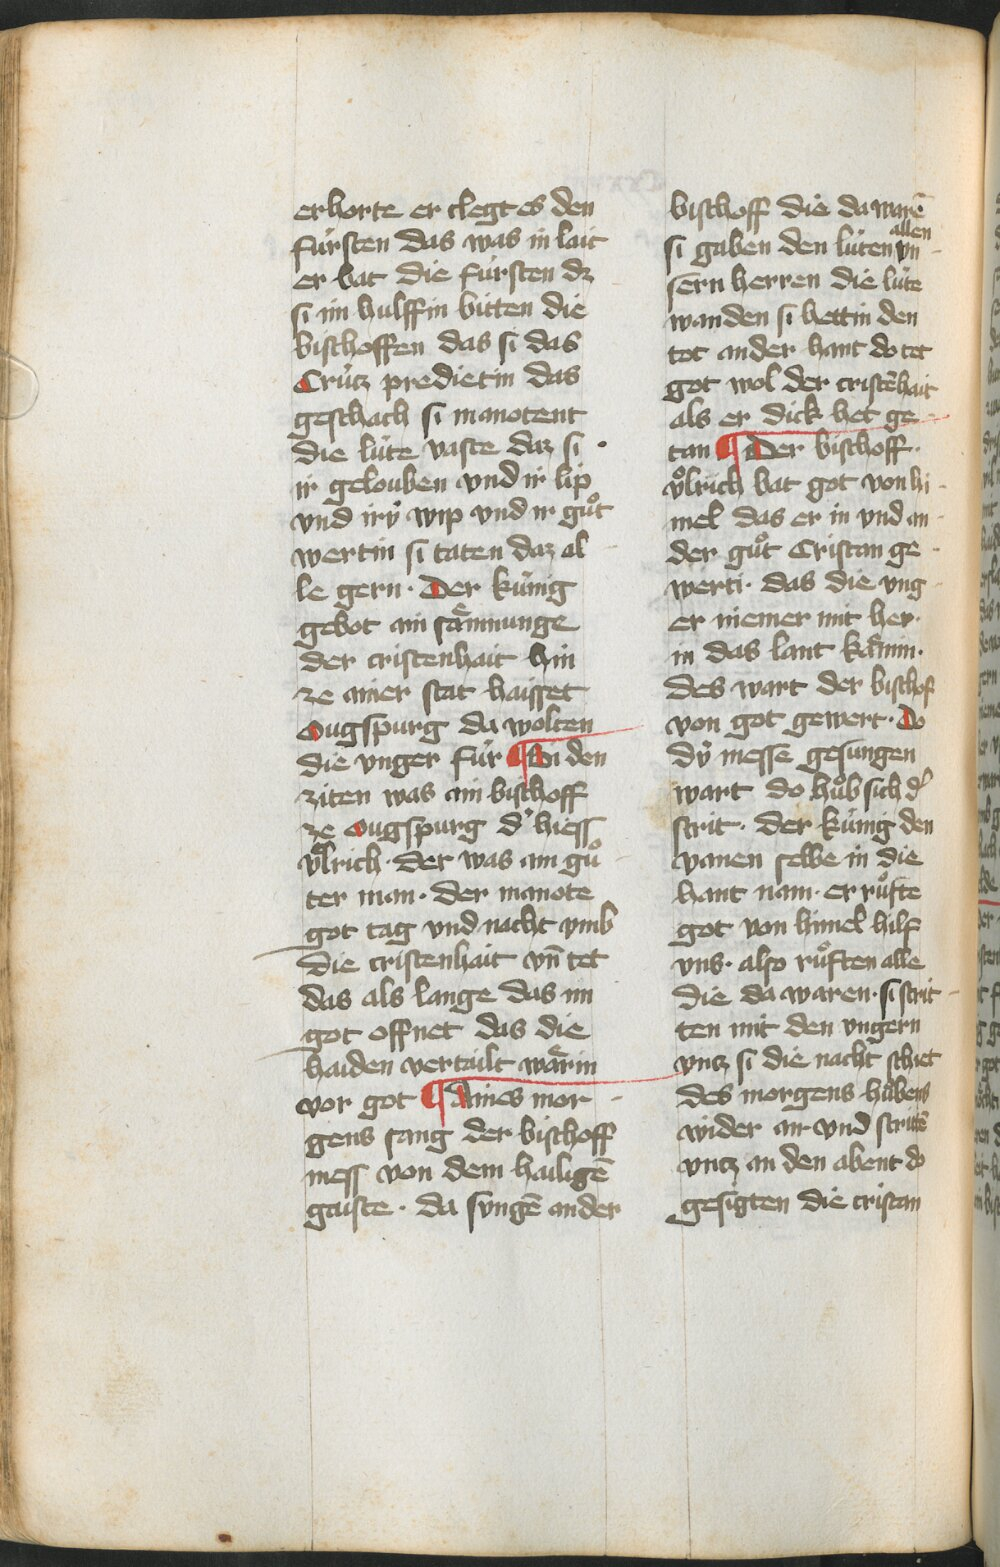 erhorte er clegt es den
fúrsten das was in lait
er bat die fúrsten dz
si im hulffin bitten die
bischoffen das si das
Crútz predietin das
geschach si manotent
die lúte vaste daz si
ir gelouben vnd ir lip
vnd irÿ wip vnd ir guͦt
wertin si taten daz al
le gern. Der kúnig
gebot ain saͤmnunge
der cristenhait hin
ze ainer stat haisset
Ougspurg da wolten
die vnger fúr ¶ Bi den
ziten was ain bischoff
ze Ougspurg dʼ hiess
vͦlrich. der was ain guͦ
ter man. der manote
got tag vnd nacht vmb
die cristenhait vn̄ tet
das als lange das im
got offnet das die
haiden vertailt waͤrin
vor got ¶ Aines mor
gens sang der bischoff
mess von dem hailigē
gaiste. da syngē ander
bischoff die da warē
si gaben den lúten allen vn
sern herren die lúte
wanden si hettin den
tot an der hant do tet
got wol der cristēhait
als er dick het ge
tan ¶ Der bischoff.
vͦlrich bat got von hi
mel das er in vnd an
der guͦt Cristan ge
werti. das die vng
er niemer mit her.
in das lant kaͤmin.
des wart der bischof
von got gewert. Do
dÿ messe gesungen
wart do huͦb sich dʼ
strit. der kúnig den
vanen selbe in die
hant nam. er ruͦfte
got von himel hilf
vns. also ruͦften alle
die da waren. si strit
ten mit den vngern
vntz si die nacht schiet
des morgens huͦbens
wider an vnd strittē
vntz an den abent do
gesigten die cristan